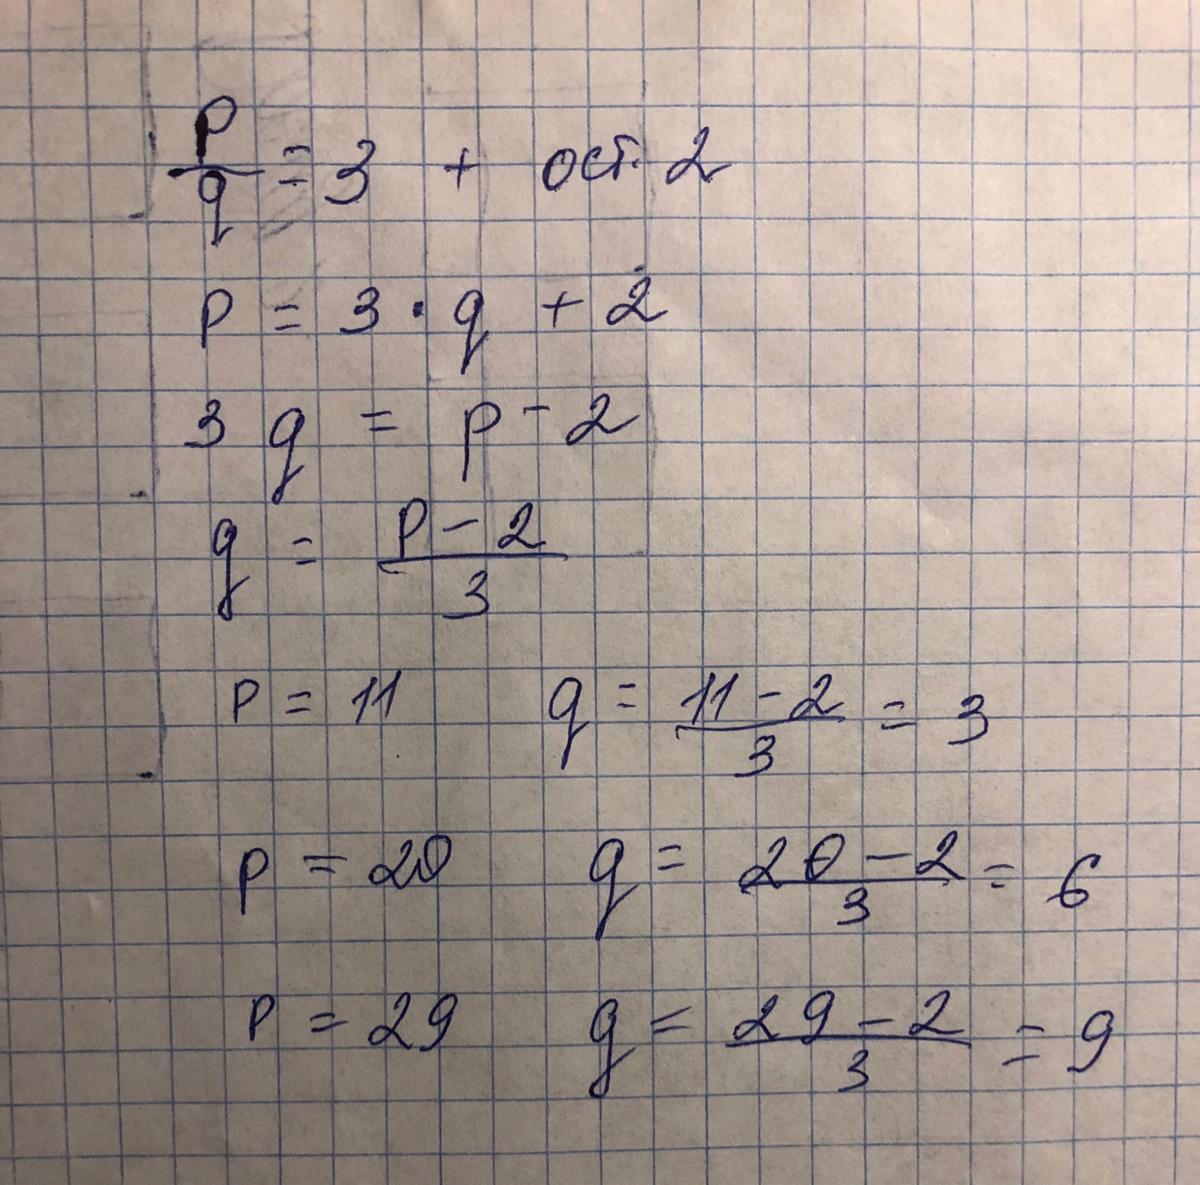 p/q = 3 + ост. 2
p = 3 · q + 2
3 q = p - 2
q = p - 2 / 3
p = 11 q = 11 - 2 / 3 = 3
p = 20 q = 20 - 2 / 3 = 6
p = 29 q = 29 - 2 / 3 = 9